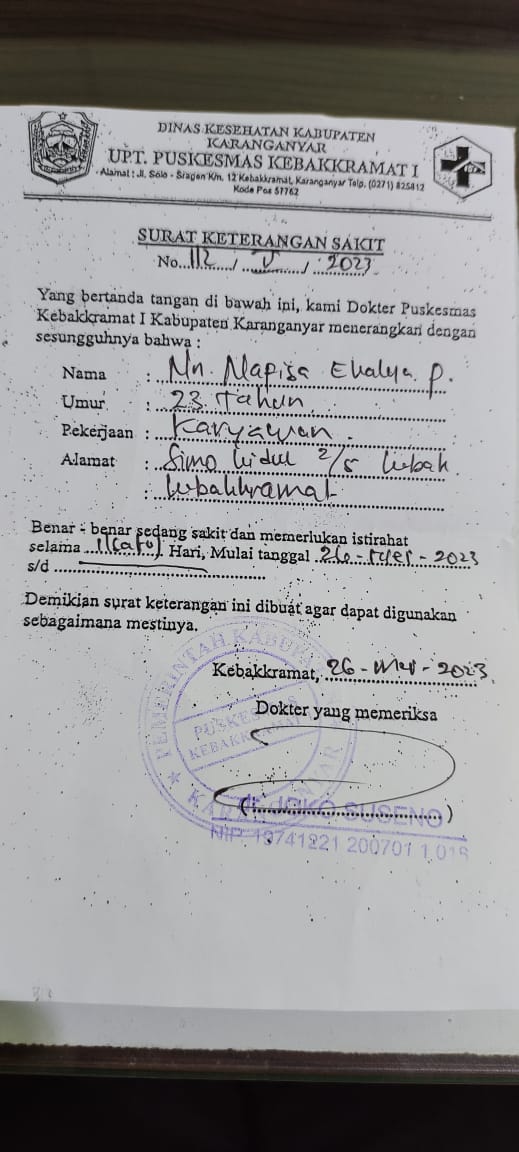 DINAS KESEHATAN KABUPATEN
KARANGANYAR
UPT. PUSKESMAS KEBAKKRAMAT I
Alamat : Jl. Solo - Sragen Km. 12 Kebakkramat, Karanganyar Telp. (0271) 825412
Kode Pos 57762
SURAT KETERANGAN SAKIT
No. 112 / V / 2023
Yang bertanda tangan di bawah ini, kami Dokter Puskesmas
Kebakkramat I Kabupaten Karanganyar menerangkan dengan
sesungguhnya bahwa :
Nama : Nn. P.
Umur : 23 Tahun
Pekerjaan : Karyawan.
Alamat : Simo kidul 2/5
: kebakkramat
Benar - benar sedang sakit dan memerlukan istirahat
selama 1 (satu) Hari, Mulai tanggal 26 - Mei - 2023
s/d
Demikian surat keterangan ini dibuat agar dapat digunakan
sebagaimana mestinya.
Kebakkramat, 26 - Mei - 2023
Dokter yang memeriksa
PEMERINTAH KABUPATEN
PUSKESMAS
KEBAKKRAMAT
KARANGANYAR
(dr. JOKO SUSENO)
NIP. 19741221 200701 1 018